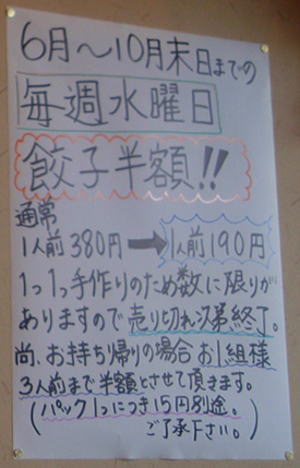 6月～10月末日までの
毎週水曜日
餃子半額!!
通常
1人前380円➡1人前190円
1つ1つ手作りのため数に限りが
ありますので売り切れ次第終了。
尚、お持ち帰りの場合お1組様
3人前まで半額とさせて頂きます。
(パック1つにつき15円別途。
ご了承下さい。)